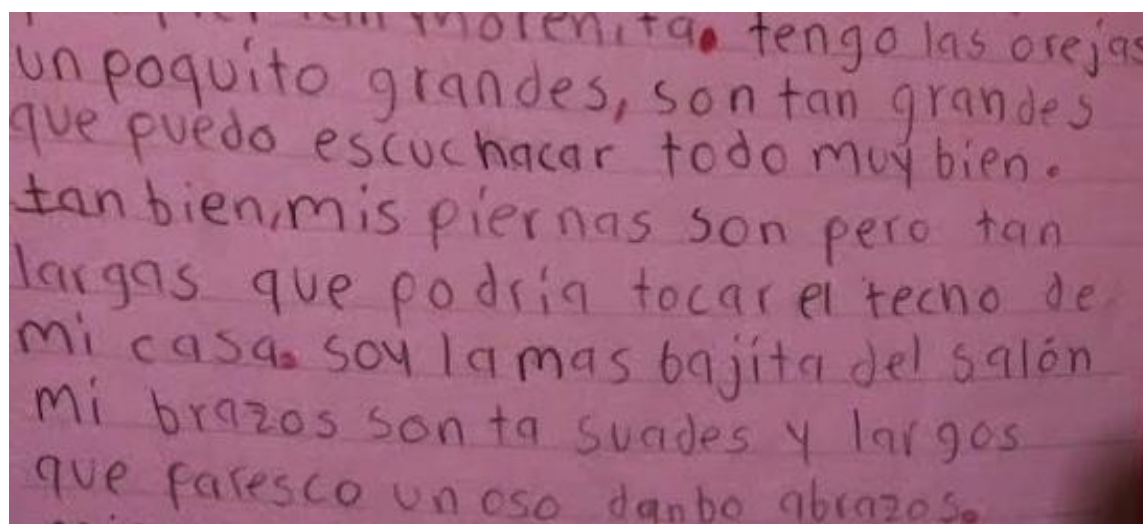 morenita. tengo las orejas
un poquito grandes, son tan grandes
que puedo escuchacar todo muy bien.
tan bien, mis piernas son pero tan
largas que podría tocar el techo de
mi casa. soy la mas bajita del salón
mi brazos son ta suades y largos
que paresco un oso danbo abrazos.